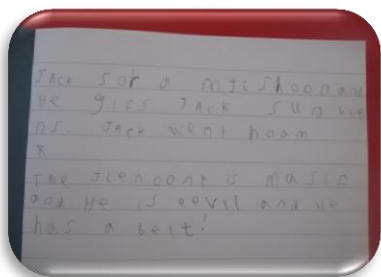 JAck sor a mJishoon and
He gifs JACK sum bee
ns. JAck went hoam
*
The Jienoont is masiv
and He is eevil and He
has a belt!